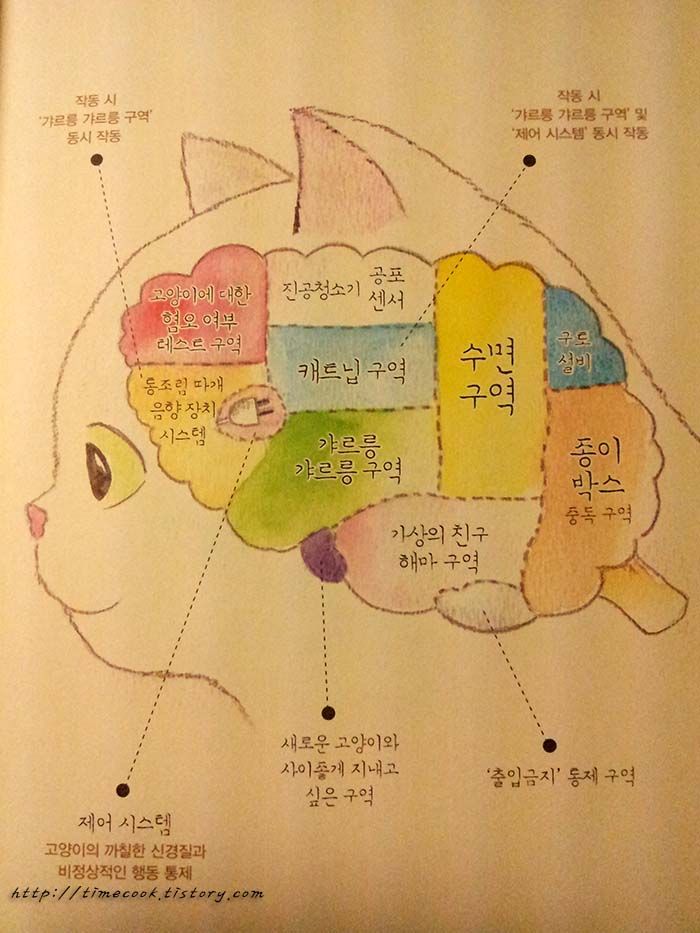 작동 시
'갸르릉 갸르릉 구역'
동시 작동
작동 시
'갸르릉 갸르릉 구역' 및
'제어 시스템' 동시 작동
고양이에 대한
혐오 여부
테스트 구역
진공청소기 공포
센서
캐트닙 구역
수면
구역
구토
설비
통조림 따개
음향 장치
시스템
갸르릉
갸르릉 구역
종이
박스
중독 구역
가상의 친구
해마 구역
새로운 고양이와
사이좋게 지내고
싶은 구역
'출입금지' 통제 구역
제어 시스템
고양이의 까칠한 신경질과
비정상적인 행동 통제
http://timecook.tistory.com